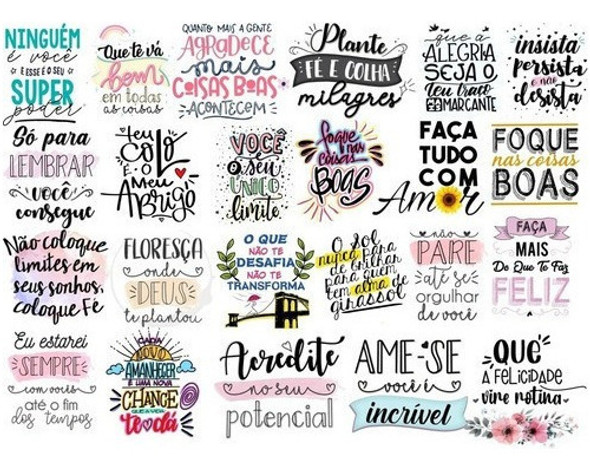 NINGUÉM
é você
E ESSE É O SEU
SUPER
poder
Que te vá
bem
em todas
as coisas
QUANTO MAIS A GENTE
AGRADECE
mais
COISAS BOAS
ACONTECEM
Plante
FÉ E COLHA
milagres
que a
ALEGRIA
SEJA O
teu traço
MARCANTE
insista
persista
e não
desista
Só para
LEMBRAR
você
consegue
teu
COLO
É O
MEU
Abrigo
VOCÊ
é o seu
ÚNICO
limite
foque
nas
coisas
BOAS
FAÇA
TUDO
COM
Amor
FOQUE
nas coisas
BOAS
Não coloque
limites em
seus sonhos,
coloque Fé
FLORESÇA
onde
DEUS
te plantou
O QUE
NÃO TE
DESAFIA
NÃO TE
TRANSFORMA
O Sol
nunca para
de brilhar
para quem
tem alma de
girassol
não
PARE
até se
orgulhar
de você
FAÇA
MAIS
Do Que Te Faz
FELIZ
Eu estarei
SEMPRE
com vocês
até o fim
dos tempos
CADA
NOVO
AMANHECER
É UMA NOVA
CHANCE
QUE A VIDA
te dá
Acredite
no seu
potencial
AME-SE
você é
incrível
QUE
A FELICIDADE
vire rotina